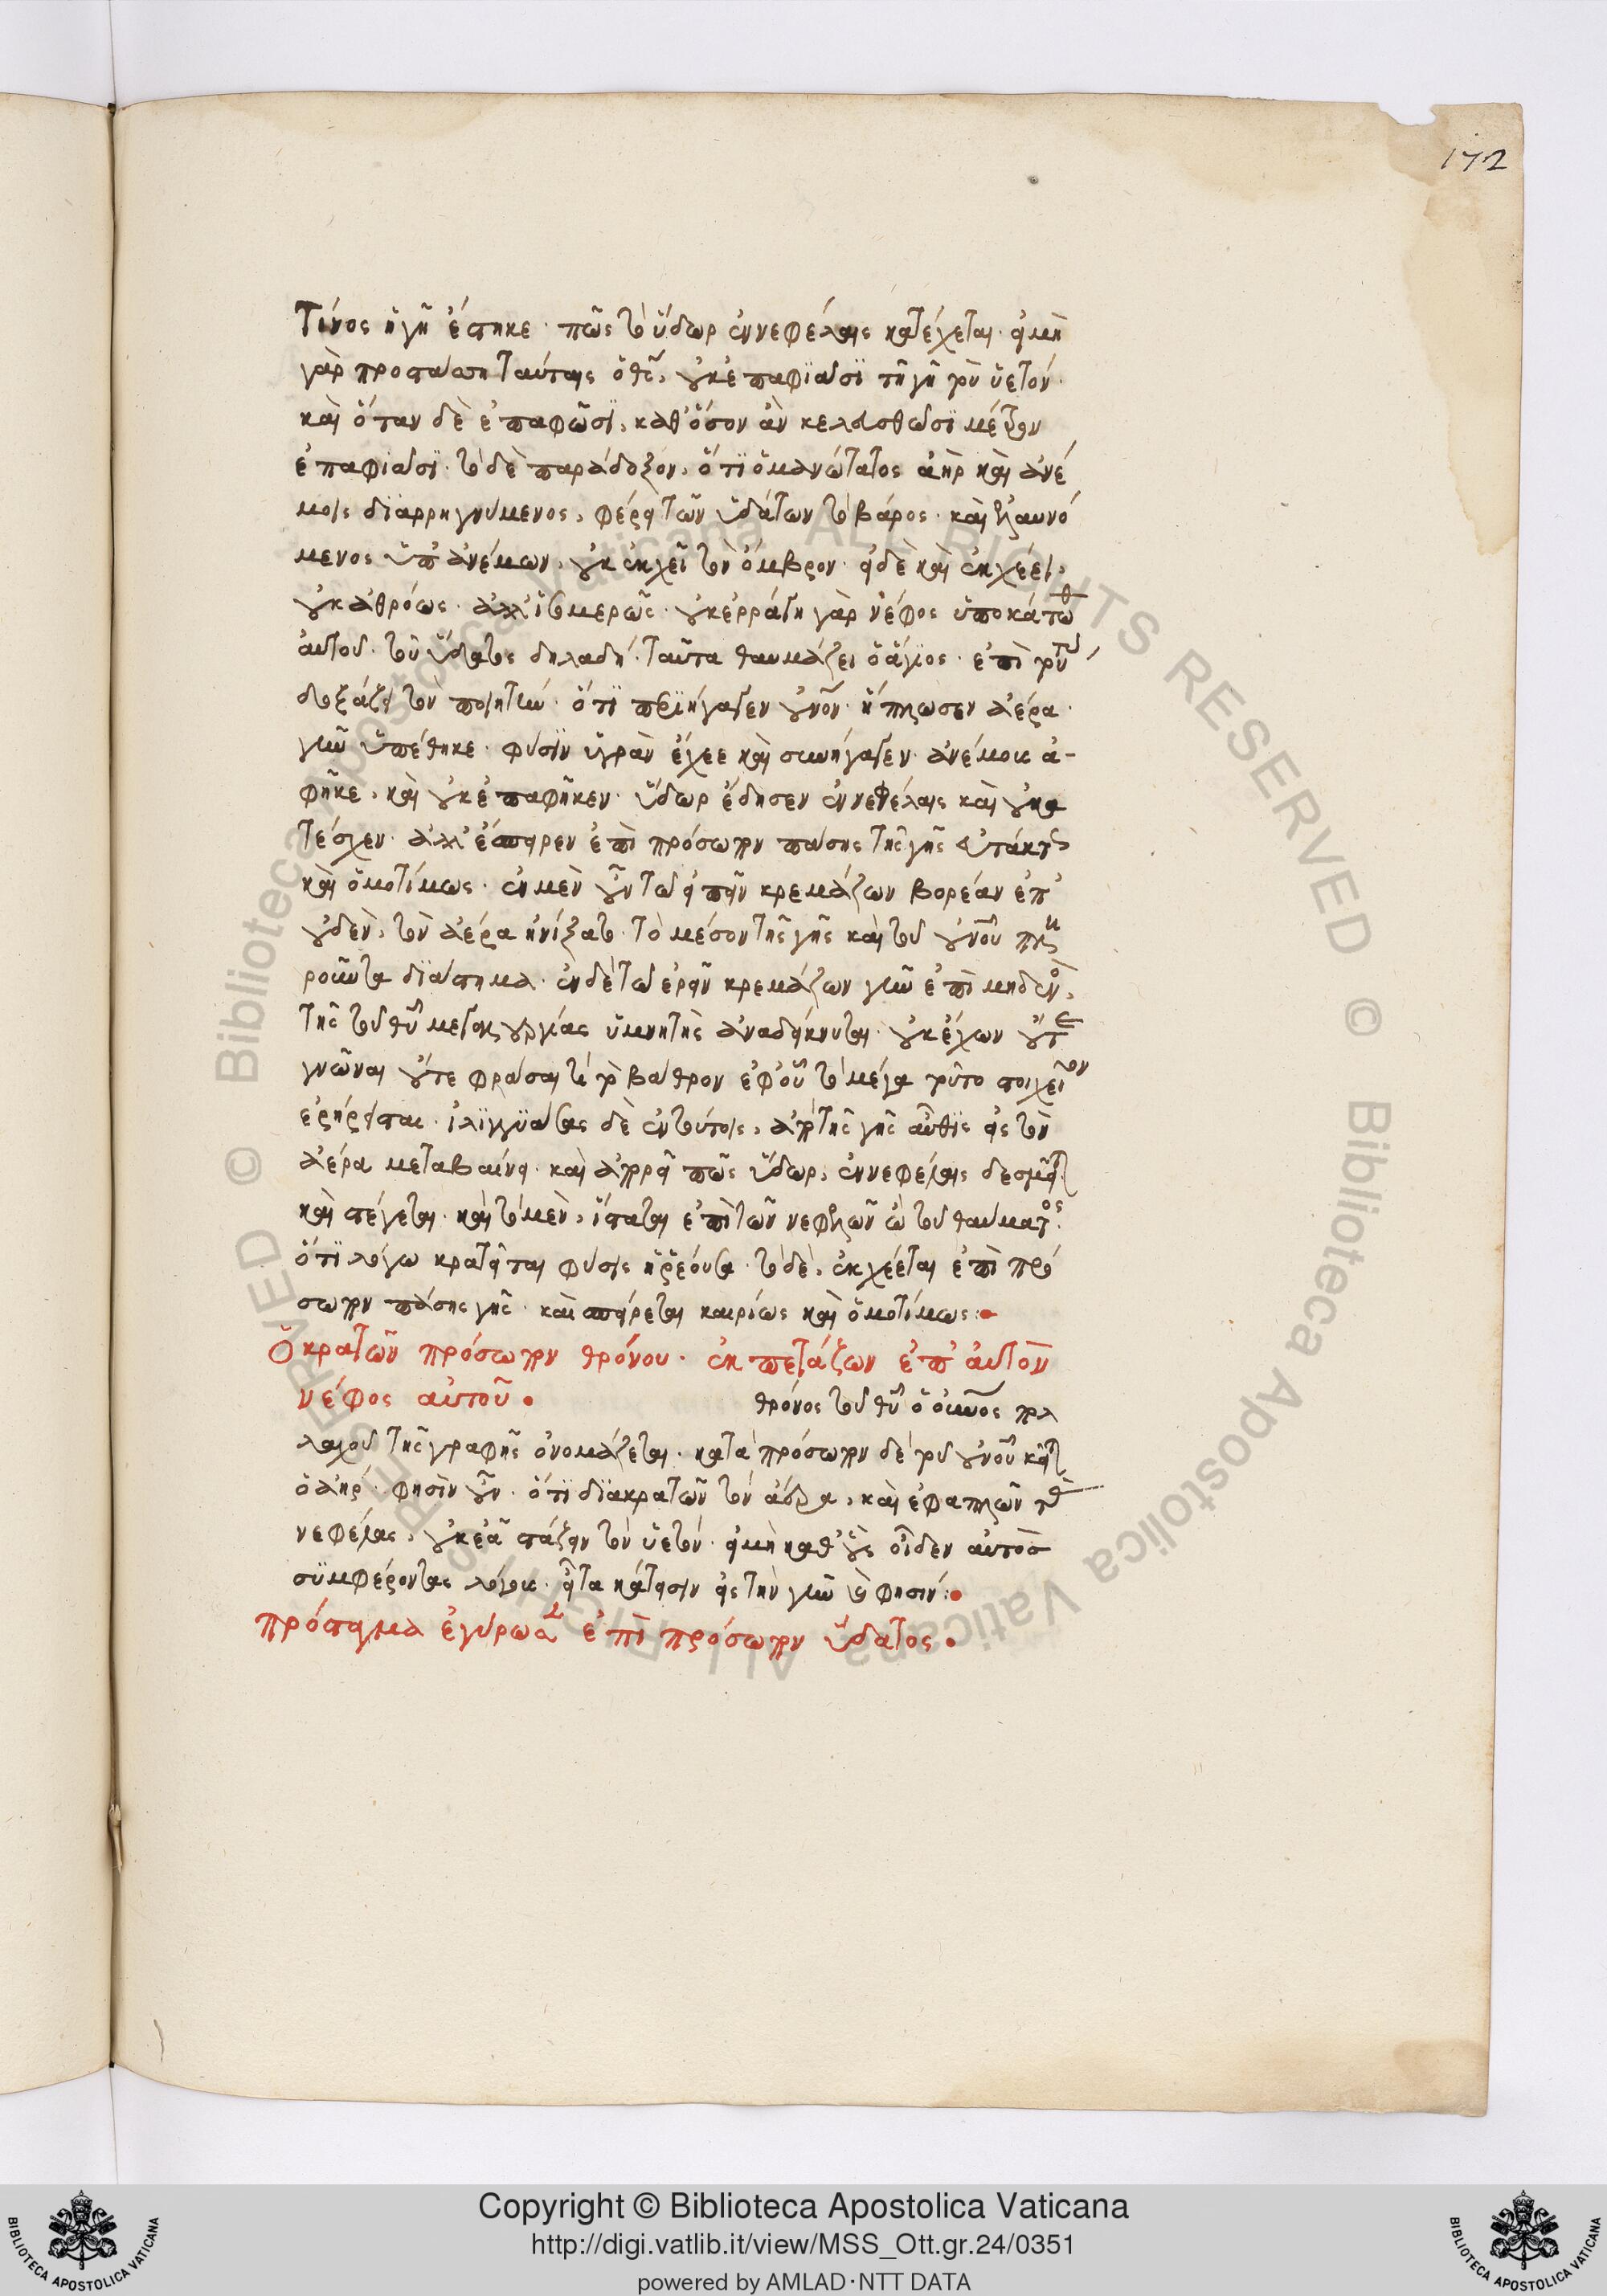 172
τίνος ἡ γῆ ἕστηκε· πῶς τὸ ὕδωρ ἐν νεφέλαις κατέχεται· εἰ μὴ
γὰρ προστάξῃ ταύταις ὁ θς, οὐκ ἐπαφιᾶσι τῇ γῇ τὸν ὑετόν·
καὶ ὅταν δὲ ἐπαφῶσι, καθ' ὅσον ἂν κελευσθῶσι μέτρον
ἐπαφιᾶσι· τὸ δὲ παράδοξον, ὅτι ὁ μανώτατος ἀὴρ καὶ ἀνέ
μοις διαρρηγνύμενος, φέρει τῶν ὑδάτων τὸ βάρος· καὶ ἐλαυνό
μενος ὑπ' ἀνέμων, οὐκ ἐκχεῖ τὸν ὄμβρον· εἰ δὲ καὶ ἐκχέει,
οὐκ ἀθρόως· ἀλλ' ἰσομερῶς· οὐκ ἐρράγη γὰρ νέφος ὑποκάτωθ
αὐτοῦ· τοῦ ὕδατος δηλαδή· ταῦτα θαυμάζει ὁ ἅγιος· ἐπὶ τούτ
δοξάζει τὸν ποιητὴν· ὅτι περιήγαγεν οὐνον· ἥπλωσεν ἀέρα·
γῆν ὑπέθηκε· φύσιν ὑγρὰν ἔχεε καὶ συνήγαγεν· ἀνέμοις ἀ-
φῆκε, καὶ οὐκ ἐπαφῆκεν· ὕδωρ ἔδησεν ἐν νεφέλαις καὶ οὐ κα
τέσχεν· ἀλλ' ἔσπειρεν ἐπὶ πρόσωπον πάσης τῆς γῆς εὐτάκτως
καὶ ὁμοτίμως· ἐν μὲν οὖν τῷ εἰπεῖν κρεμάζων βορέαν ἐπ'
οὐδὲν, τὸν ἀέρα ᾐνίξατο· τὸ μέσον τῆς γῆς καὶ τοῦ οὐνοῦ πλη
ροῦντα διάστημα· ἐν δὲ τῷ ἐρεῖν κρεμάζων γῆν ἐπὶ μηδενὸς,
τῆς τοῦ θυ μεγαλουργίας ὑμνητὴς ἀναδείκνυται· οὐκ ἔχων οὔτε
γνῶναι οὔτε φράσαι τὸ βάθρον ἐφ' οὗ τὸ μέγα τοῦτο στοιχεῖον
ἐρήρεισται· ἰλιγγιάσας δὲ ἐν τούτοις, ἀπὸ τῆς γῆς αὖθις εἰς τὸν
ἀέρα μεταβαίνει· καὶ ἀπορεῖ πῶς ὕδωρ, ἐν νεφέλαις δεσμεῖται
καὶ στέγεται· καὶ τὸ μὲν, ἵσταται ἐπὶ τῶν νεφελῶν ὢ τοῦ θαύματος·
ὅτι λόγῳ κρατεῖται φύσις ἡ ῥέουσα· τὸ δὲ, ἐκχέεται ἐπὶ πρό
σωπον πάσης γῆς· καὶ σπείρεται καιρίως καὶ ὁμοτίμως:
Ὁ κρατῶν πρόσωπον θρόνου· ἐκπετάζων ἐπ' αὐτὸν
νέφος αὐτοῦ· θρόνος τοῦ θυ ὁ οὐνος πολ
λαχοῦ τῆς γραφῆς ὀνομάζεται· κατὰ πρόσωπον δὲ τοῦ οὐνοῦ κεῖται
ὁ ἀήρ· φησὶν οὖν· ὅτι διακρατῶν τὸν ἀέρα, καὶ ἐφαπλῶν τὰς
νεφέλας, οὐκ ἐᾷ στάζειν τὸν ὑετόν· εἰ μὴ καθ' οὓς οἶδεν αὐτὸς
συμφέροντας λόγους· εἶτα κάτεισιν εἰς τὴν γῆν καὶ φησιν:
πρόσταγμα ἐγύρωσεν ἐπὶ πρόσωπον ὕδατος·
Copyright © Biblioteca Apostolica Vaticana
http://digi.vatlib.it/view/MSS_Ott.gr.24/0351
powered by AMLAD·NTT DATA
BIBLIOTECA APOSTOLICA VATICANA
BIBLIOTECA APOSTOLICA VATICANA